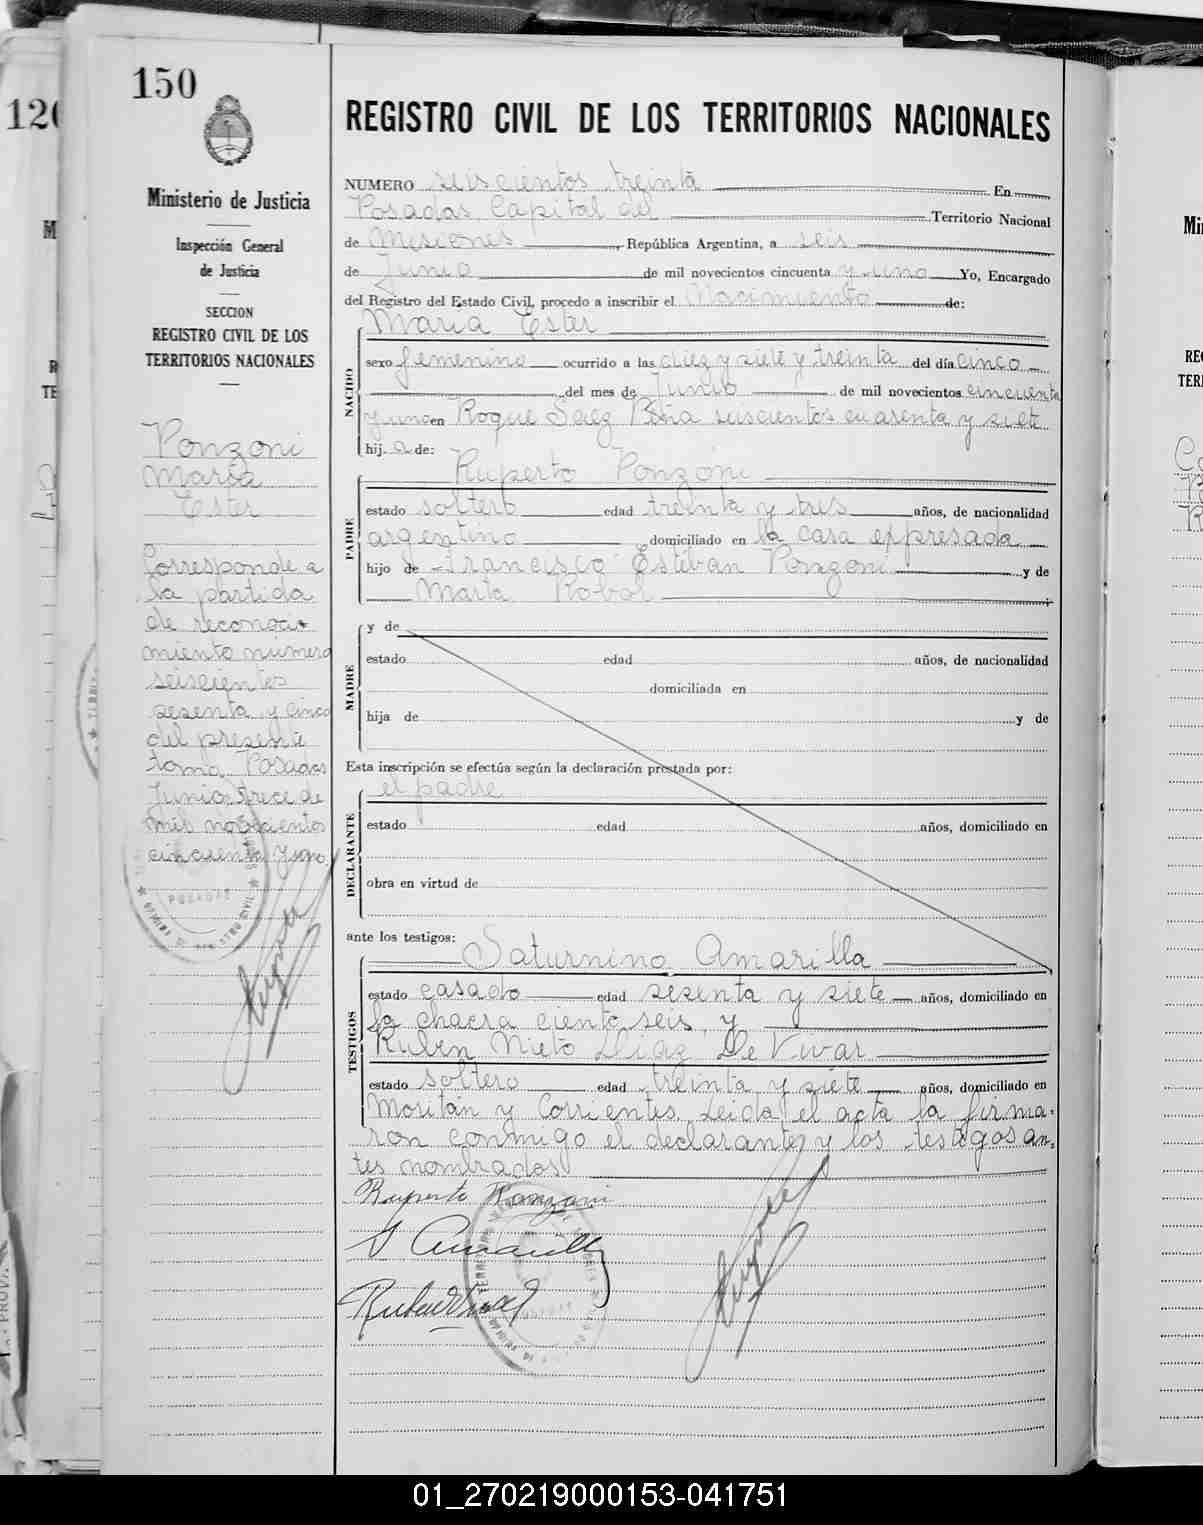 150
Ministerio de Justicia
Inspección General
de Justicia
SECCION
REGISTRO CIVIL DE LOS
TERRITORIOS NACIONALES
Ponzoni
María
Ester
Corresponde a
la partida
de reconoci-
miento número
seiscientos
sesenta y cinco
del presente
tomo. Posadas
Junio trece de
mil novecientos
cincuenta y uno.
POSADAS
REGISTRO CIVIL DE LOS TERRITORIOS NACIONALES
NUMERO seiscientos treinta En
Posadas, Capital del Territorio Nacional
de Misiones, República Argentina, a seis
de Junio de mil novecientos cincuenta y uno Yo, Encargado
del Registro del Estado Civil, procedo a inscribir el Nacimiento de:
NACIDO
María Ester
sexo femenino ocurrido a las diez y siete y treinta del día cinco
del mes de Junio de mil novecientos cincuenta
y uno en Roque Saez Peña seiscientos cuarenta y siete
hij a de:
PADRE
Ruperto Ponzoni
estado soltero edad treinta y tres años, de nacionalidad
argentino domiciliado en la casa expresada
hijo de Francisco Estéban Ponzoni y de
Marta
MADRE
y de
estado edad años, de nacionalidad
domiciliada en
hija de y de
Esta inscripción se efectúa según la declaración prestada por:
el padre
DECLARANTE
estado edad años, domiciliado en
obra en virtud de
ante los testigos:
TESTIGOS
Saturnino Amarilla
estado casado edad sesenta y siete años, domiciliado en
la chacra ciento seis, y
Rubén Nieto Diaz De Vivar
estado soltero edad treinta y siete años, domiciliado en
Moritán y Corrientes. Leida el acta la firma-
ron conmigo el declarante y los testigos an-
tes nombrados
Ruperto Ponzoni
S Amarilla
120
01_270219000153-041751